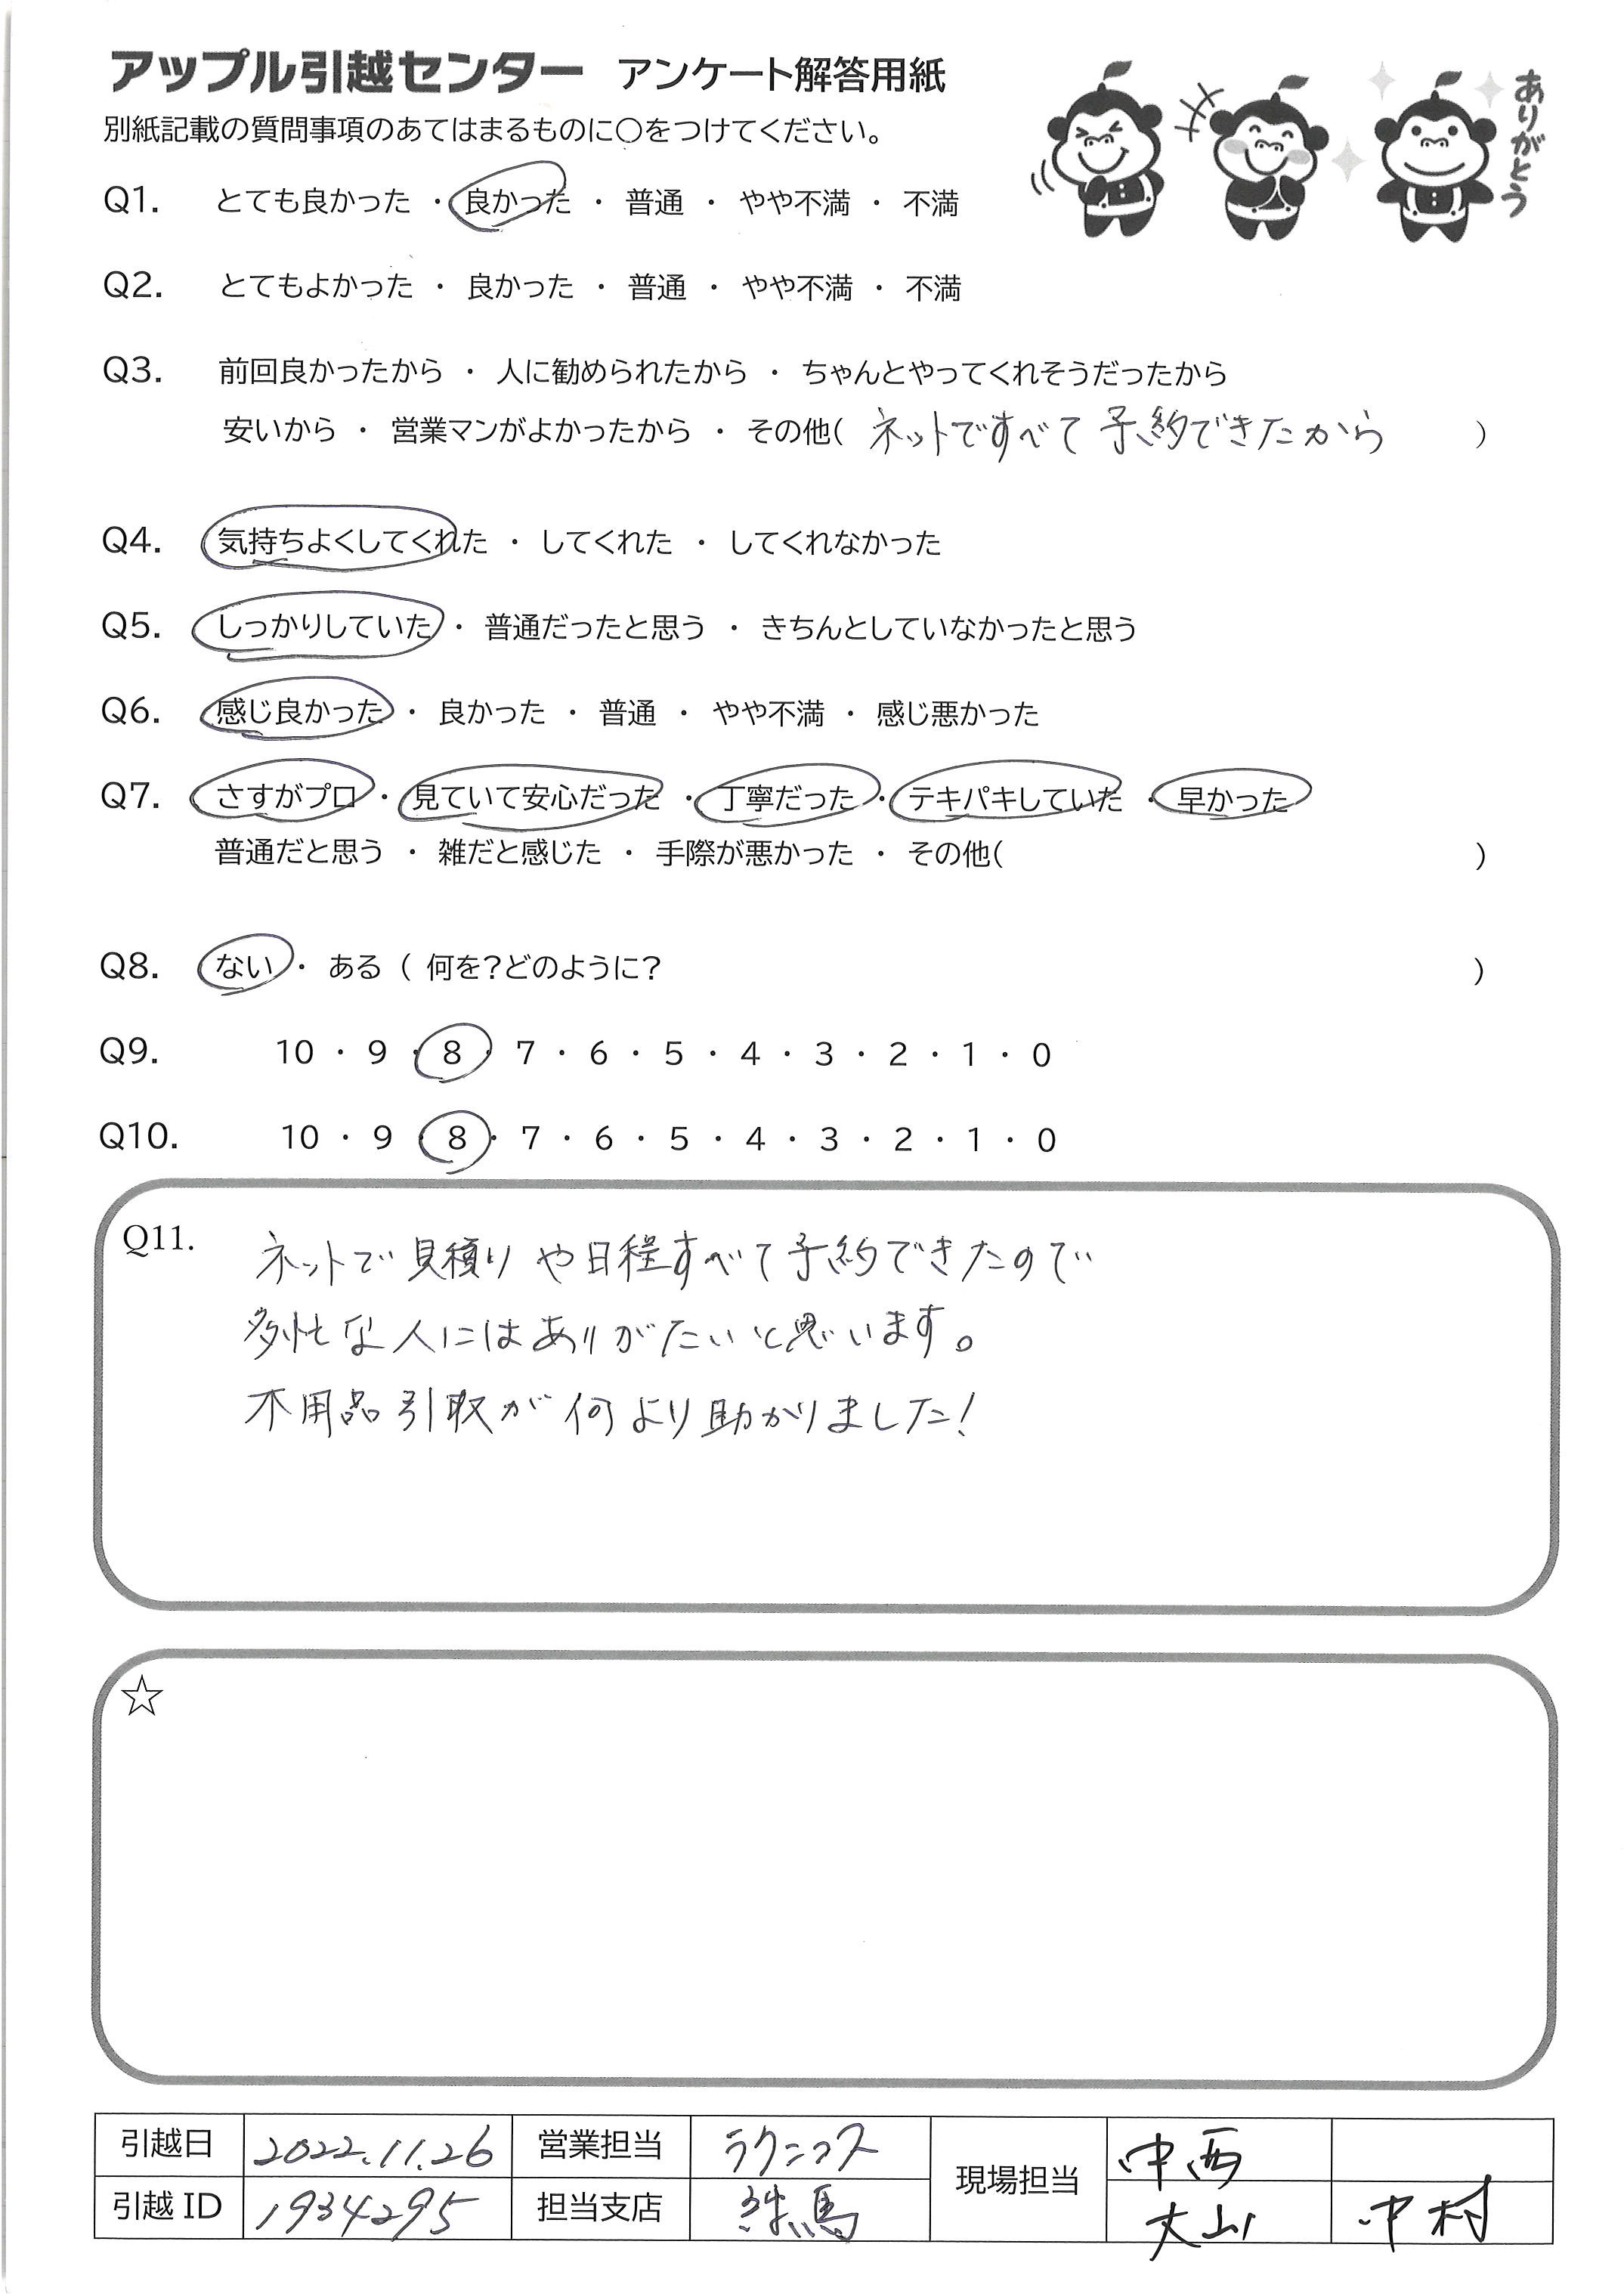 アップル引越センター アンケート解答用紙
ありがとう
別紙記載の質問事項のあてはまるものに○をつけてください。
Q1. とても良かった ・ 良かった ・ 普通 ・ やや不満 ・ 不満
Q2. とてもよかった ・ 良かった ・ 普通 ・ やや不満 ・ 不満
Q3. 前回良かったから ・ 人に勧められたから ・ ちゃんとやってくれそうだったから
安いから ・ 営業マンがよかったから ・ その他( ネットですべて予約できたから )
Q4. 気持ちよくしてくれた ・ してくれた ・ してくれなかった
Q5. しっかりしていた ・ 普通だったと思う ・ きちんとしていなかったと思う
Q6. 感じ良かった ・ 良かった ・ 普通 ・ やや不満 ・ 感じ悪かった
Q7. さすがプロ ・ 見ていて安心だった ・ 丁寧だった ・ テキパキしていた ・ 早かった
普通だと思う ・ 雑だと感じた ・ 手際が悪かった ・ その他( )
Q8. ない ・ ある ( 何を?どのように? )
Q9. 10 ・ 9 ・ 8 ・ 7 ・ 6 ・ 5 ・ 4 ・ 3 ・ 2 ・ 1 ・ 0
Q10. 10 ・ 9 ・ 8 ・ 7 ・ 6 ・ 5 ・ 4 ・ 3 ・ 2 ・ 1 ・ 0
Q11. ネットで見積りや日程すべて予約できたので
多忙な人にはありがたいと思います。
不用品引取が何より助かりました!
☆
引越日 2022.11.26 営業担当 ラクニコス 現場担当 中西
引越 ID 1934295 担当支店 練馬 大山 中村